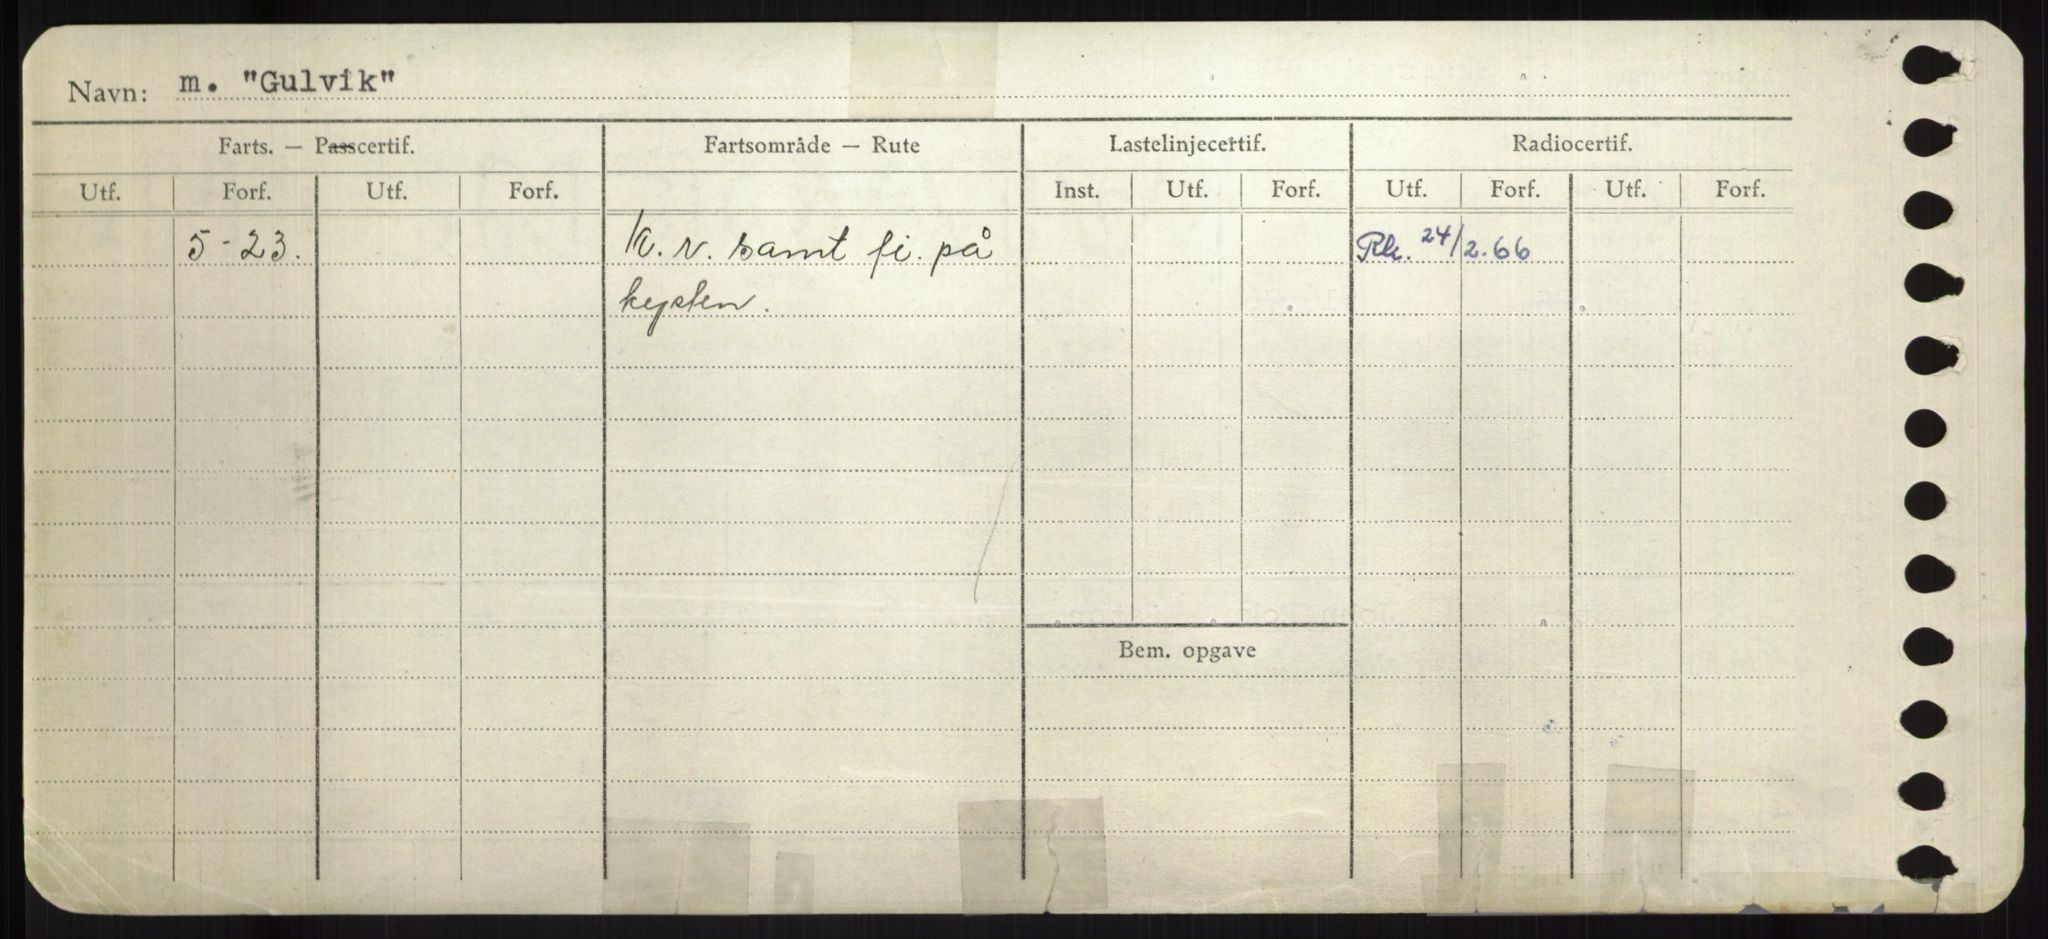 Navn: m. "Gulvik"
Farts. — Passcertif. Fartsområde — Rute Lastelinjecertif. Radiocertif.
Utf. Forf. Utf. Forf. Inst. Utf. Forf. Utf. Forf. Utf. Forf.
5-23. K. v. samt fi. på 24/2.66
kysten.
Bem. opgave